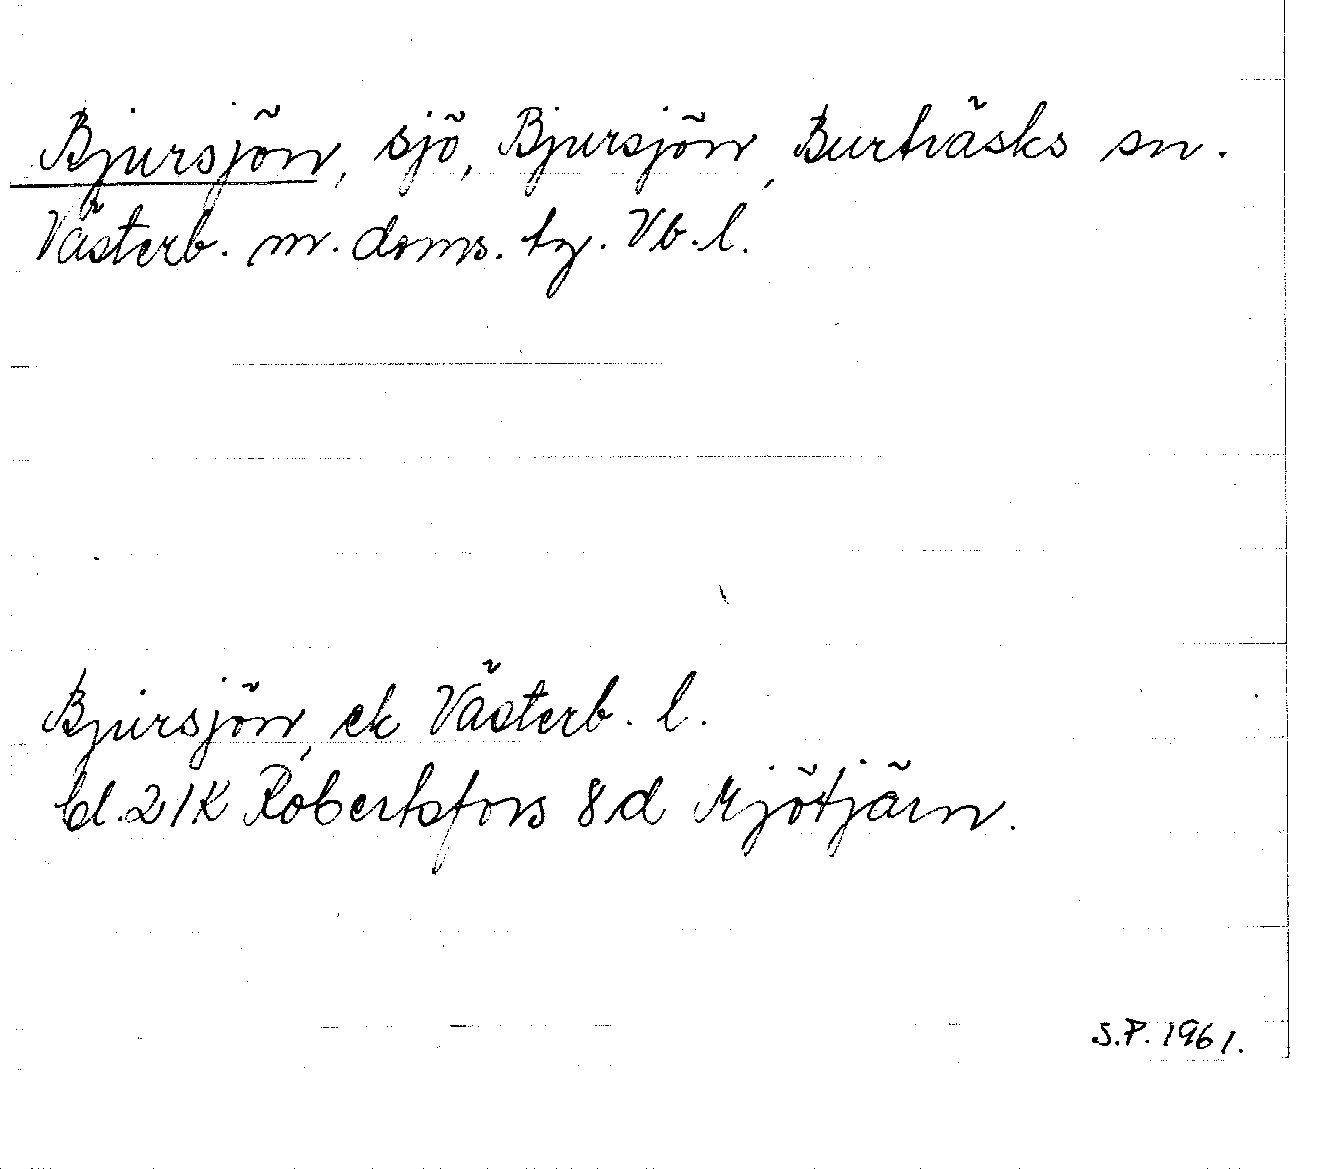 Bjursjön, sjö, Bjursjön, Burträsks sn.
Västerb. m. doms. tg. Vb. l.
Bjursjön, ek Västerb. l.
bl. 21K Robertsfors 8d Mjötjärn.
S.P. 1961.